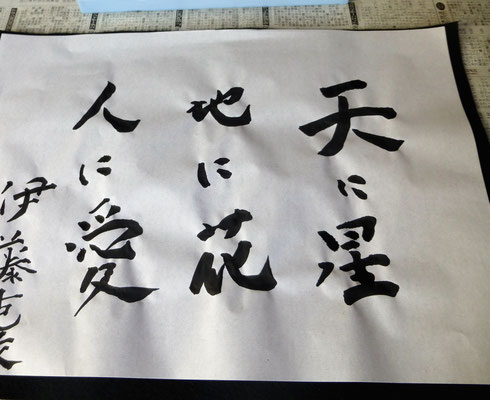 天に星
地に花
人に愛
伊藤克